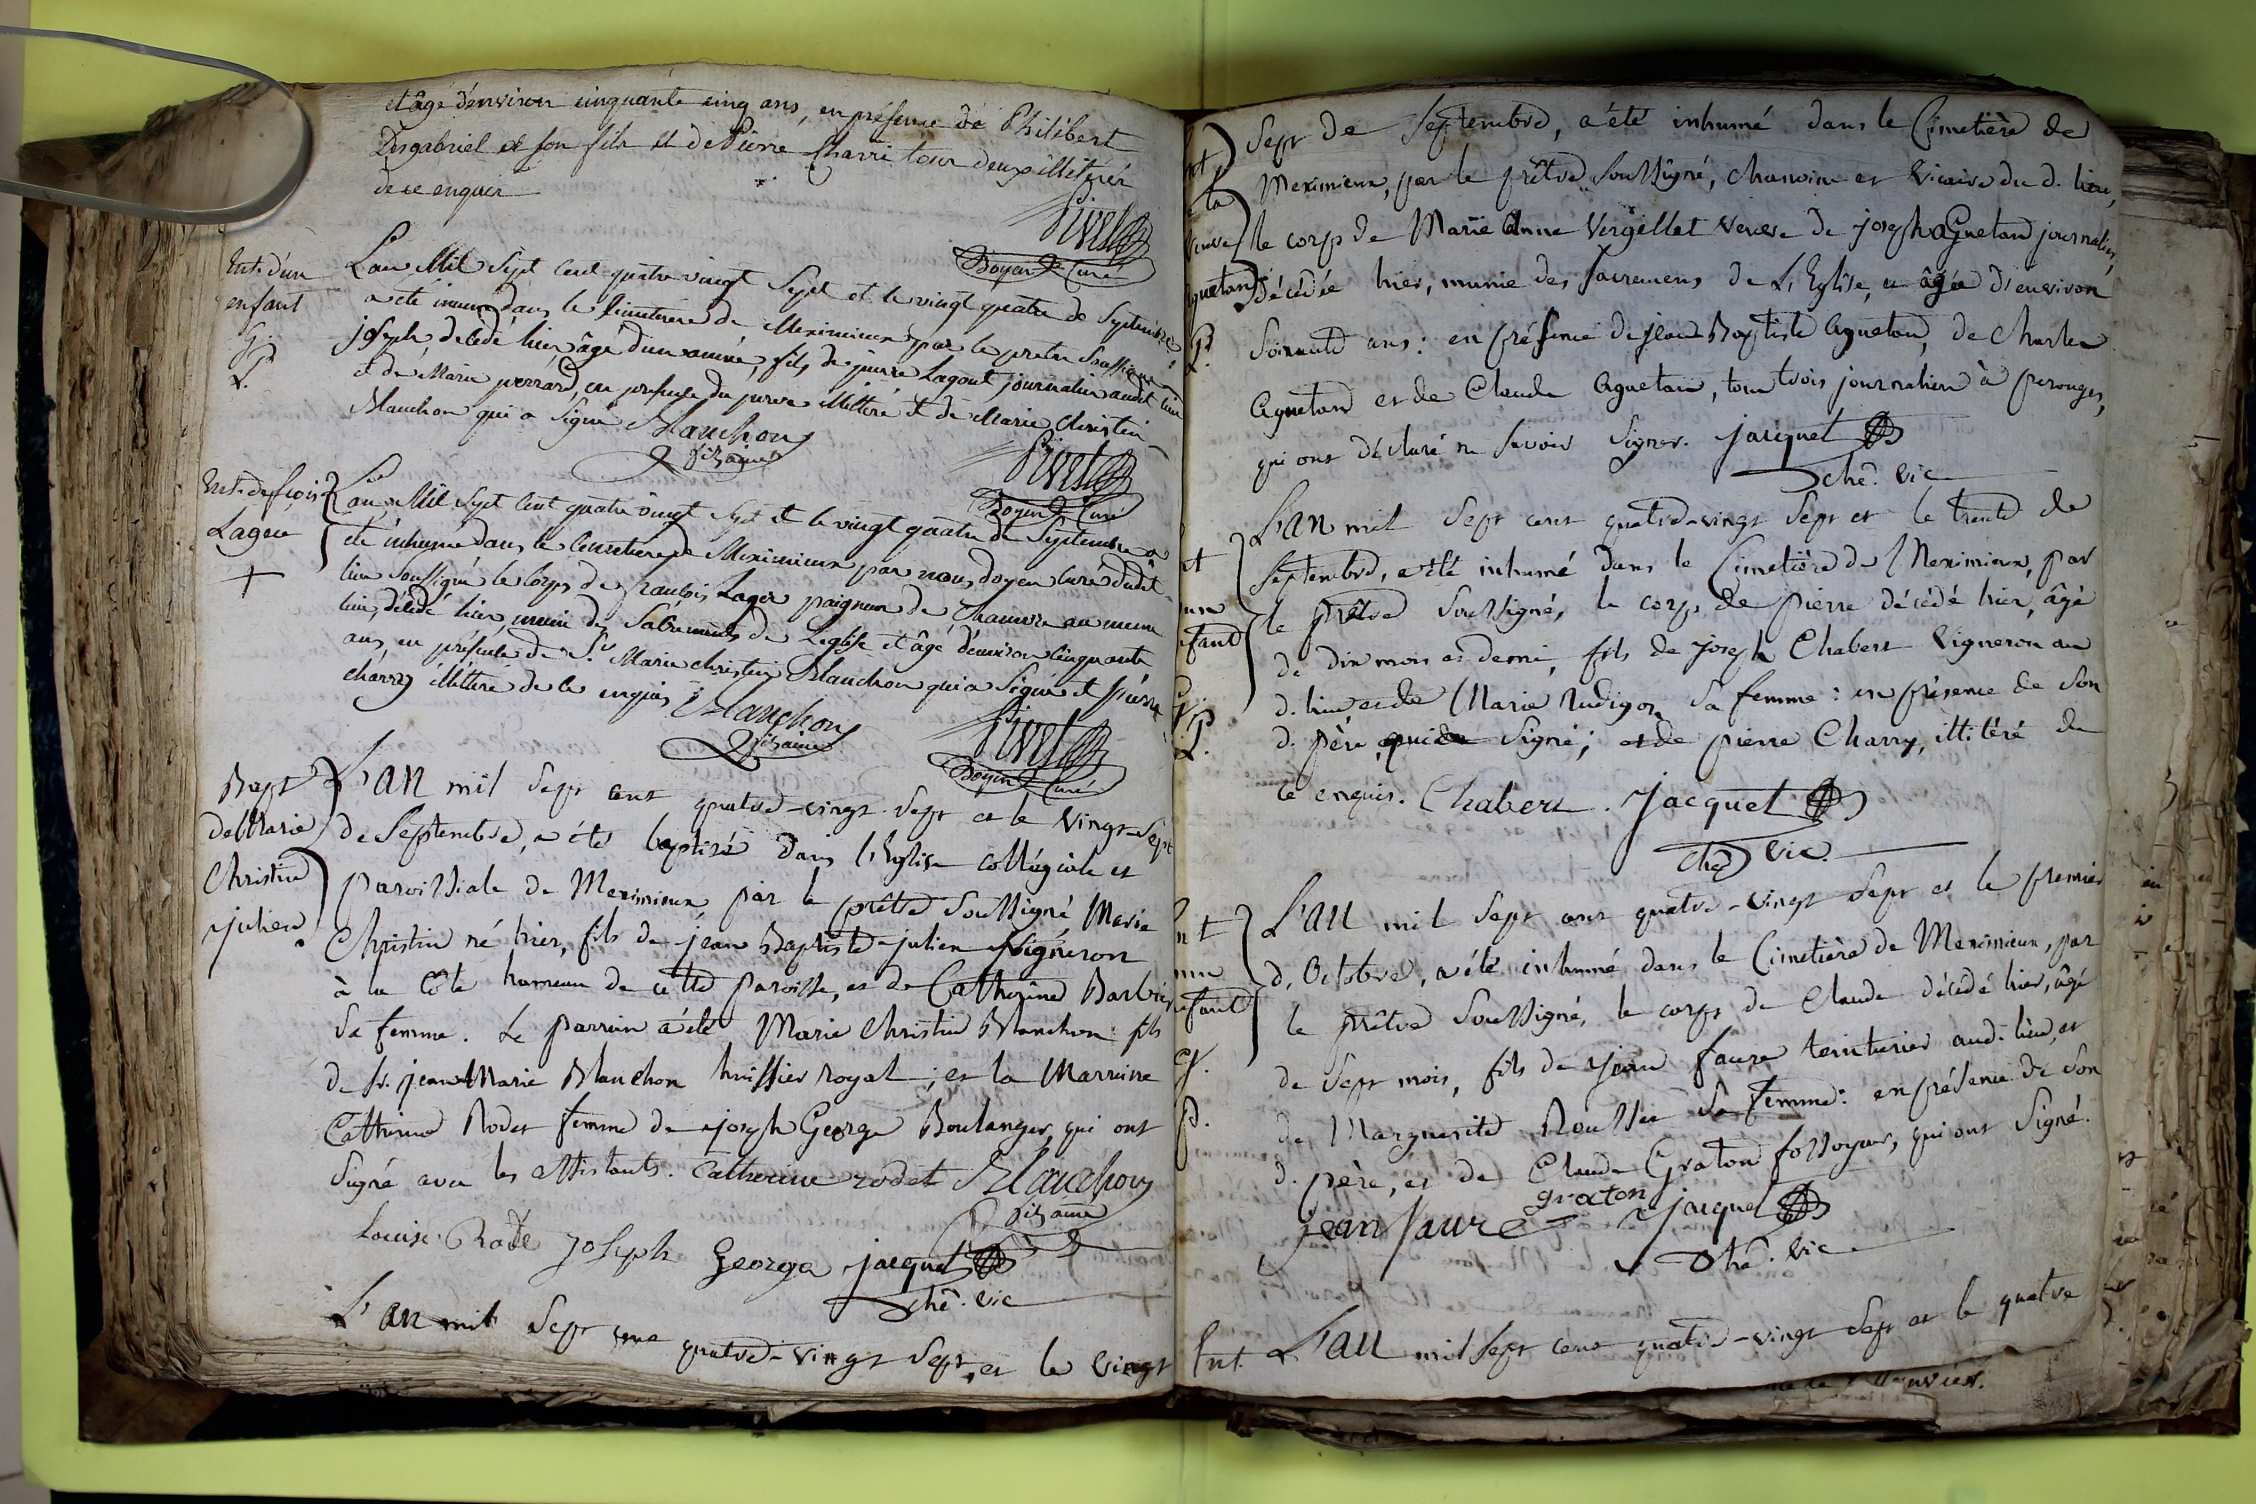 et âgé d'environ cinquante cinq ans, en présence de Philibert
Desgabriel et son fils et de Pierre Charri tous deux illitérés
de ce enquis
Pivet
Doyen & Curé
Ent. d'un
enfant
G.
P.
L'an Mil Sept Cent quatre vingt Sept et le vingt quatre de Septembre
a eté inumé dans le Cimetiere de Meximieux par le pretre Soussigné
joseph decédé hier âgé d'une année, fils de pierre Lagout journalier audit lieu
et de Marie perrard, en presence du pere illitéré et de Marie Christin
Blanchon qui a Signé Blanchon
fils ainé
Pivet
Doyen & Curé
Ent. de fçois
Lager
+
L'an Mil Sept Cent quatre vingt Sept et le vingt quatre de Septembre a
été inhumé dans le Cimetiere de Meximieux par nous doyen curé dudit
lieu Soussigné le corps de françois Lager paigneur de Chanvre au meme
lieu, décédé hier, muni des Sacrements de Leglise et âgé d'environ cinquante
ans, en présence de Sr. Marie christin Blanchon qui a Signé et pierre
charry illitéré de ce enquis Blanchon
fils ainé
Pivet
Doyen & Curé
Bapt
de Marie
Christin
julien
L'an mil Sept cent quatre-vingt-Sept et le Vingt-Sept
de Septembre, a été baptisé dans l'Eglise collégiale et
paroissiale de Meximieux, par le prêtre Soussigné, Marie
Christin né hier, fils de jean Baptiste julien Vigneron
à la Côte hameau de cette paroisse, et de Catherine Barbier
Sa femme. Le parrain a été Marie Christin Blanchon fils
de Sr. jean Marie Blanchon huissier royal ; et la Marraine
Catherine Rodet femme de joseph George Boulanger, qui ont
Signé avec les assistants. Catherine rodet Blanchon
fils ainé
Louise Rode joseph George jacquet
che. vic
L'an mil Sept cent quatre-vingt Sept, et le Vingt
nt
la
veuve
Aguetand
G.
P.
Sept de Septembre, a été inhumé dans le Cimetière de
Meximieux, par le prêtre Soussigné, chanoine et Vicaire du d. lieu,
le corps de Marie Anne Vergellet Veuve de joseph Aguetand journalier,
Décédée hier, munie des Sacremens de L'Eglise, et âgée d'environ
Soixante ans : en présence de jean Baptiste Aguetand, de Charles
Aguetand et de Claude Aguetan, tous trois journaliers à perouges,
qui ont déclaré ne Savoir Signer. jacquet
che. vic
nt
un
fant
G.
P.
L'an mil Sept cent quatre-vingt Sept et le trente de
Septembre, a été inhumé dans le Cimetière de Meximieux, par
le prêtre Soussigné, le corps de pierre décédé hier, âgé
de dix mois et demi, fils de joseph Chabert Vigneron au
d. lieu et de Marie Rudigoz Sa femme : en présence de Son
d. père, qui a Signé ; et de pierre Charry, illitéré de
ce enquis. Chabert. jacquet
che. vic.
nt
un
enfant
G.
P.
L'an mil Sept cent quatre-vingt Sept et le premier
d'Octobre, a été inhumé dans le Cimetière de Meximieux, par
le prêtre Soussigné, le corps de Claude décédé hier, âgé
de Sept mois, fils de jean faure teinturier aud. lieu, et
de Marguerite Roussée Sa femme : en présence de Son
d. père, et de Claude Graton fossoyeur, qui ont Signé.
graton
jean faure jacquet
che. vic
Ent. L'an mil Sept cent quatre-vingt Sept et le quatre